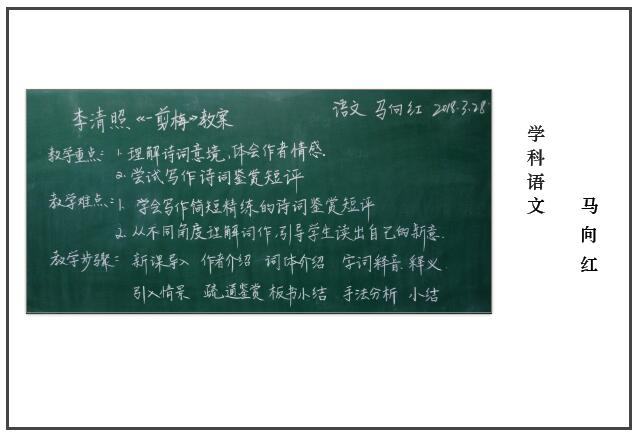 语文 马向红 2018.3.28
李清照《一剪梅》教案
教学重点：1.理解诗词意境，体会作者情感.
2.尝试写作诗词鉴赏短评
教学难点：1.学会写作简短精练的诗词鉴赏短评
2.从不同角度理解词作,引导学生读出自己的新意.
教学步骤：新课导入 作者介绍 词体介绍 字词释音 释义.
引入情景 疏通鉴赏 板书小结 手法分析 小结
学科语文
马向红